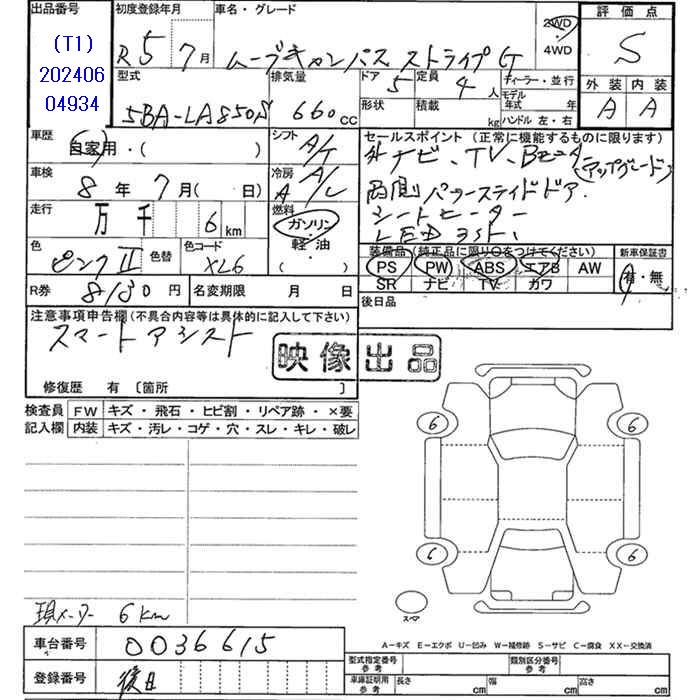 出品番号
(T1)
202406
04934
初度登録年月
R5 7月
車名・グレード
ムーブキャンバス ストライプG
2WD
・
4WD
評価点
S
外装 内装
A A
型式
5BA-LA850S
排気量
660cc
ドア
5
形状
定員
4人
積載
kg
ディーラー・並行
モデル
年式 年
ハンドル 左・右
車歴
自家用・( )
シフト
A/T
車検
8年7月( 日)
冷房
A A/C
走行
万 千 6 km
燃料
ガソリン
・
軽油
・
( )
色
ピンクII
色替
色コード
XL6
セールスポイント (正常に機能するものに限ります)
ナビ、TV、Bモニタ
(アップグレード)
両側パワースライドドア
シートヒーター
装備品 (純正品に限り〇をつけてください)
PS PW ABS エアB AW
SR ナビ TV カワ
新車保証書
有・無
R券 8130円
名変期限 月 日
後日品
注意事項申告欄(不具合内容等は具体的に記入して下さい)
スマートアシスト
映像出品
修復歴 有 〔箇所 〕
検査員
記入欄
FW キズ・飛石・ヒビ割・リペア跡・×要
内装 キズ・汚レ・コゲ・穴・スレ・キレ・破レ
6 6
6 6
スペア
現メーター 6km
A-キズ E-エクボ U-凹み W-補修跡 S-サビ C-腐食 XX-交換済
車台番号 0036615
登録番号 後日
型式指定番号
参考
類別区分番号
参考
車庫証明用
参考
長さ cm 幅 cm 高さ cm